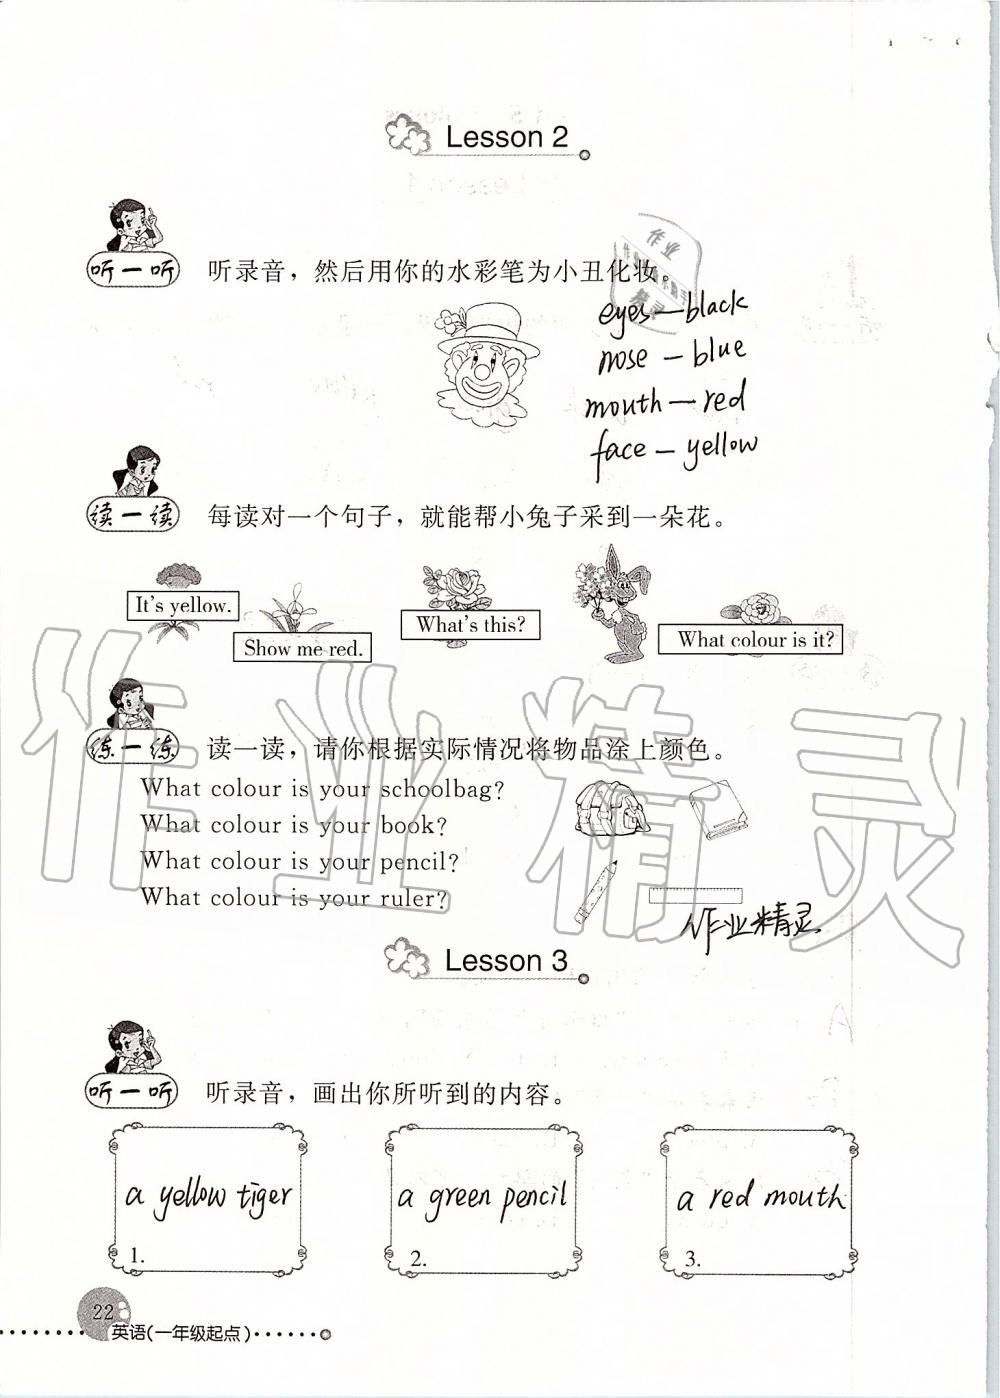 Lesson 2
听一听 听录音，然后用你的水彩笔为小丑化妆。
eyes—black
nose—blue
mouth—red
face—yellow
读一读 每读对一个句子，就能帮小兔子采到一朵花。
It's yellow.
Show me red.
What's this?
What colour is it?
练一练 读一读，请你根据实际情况将物品涂上颜色。
What colour is your schoolbag?
What colour is your book?
What colour is your pencil?
What colour is your ruler?
作业精灵
作业精灵
Lesson 3
听一听 听录音，画出你所听到的内容。
a yellow tiger
1.
a green pencil
2.
a red mouth
3.
22
英语(一年级起点)